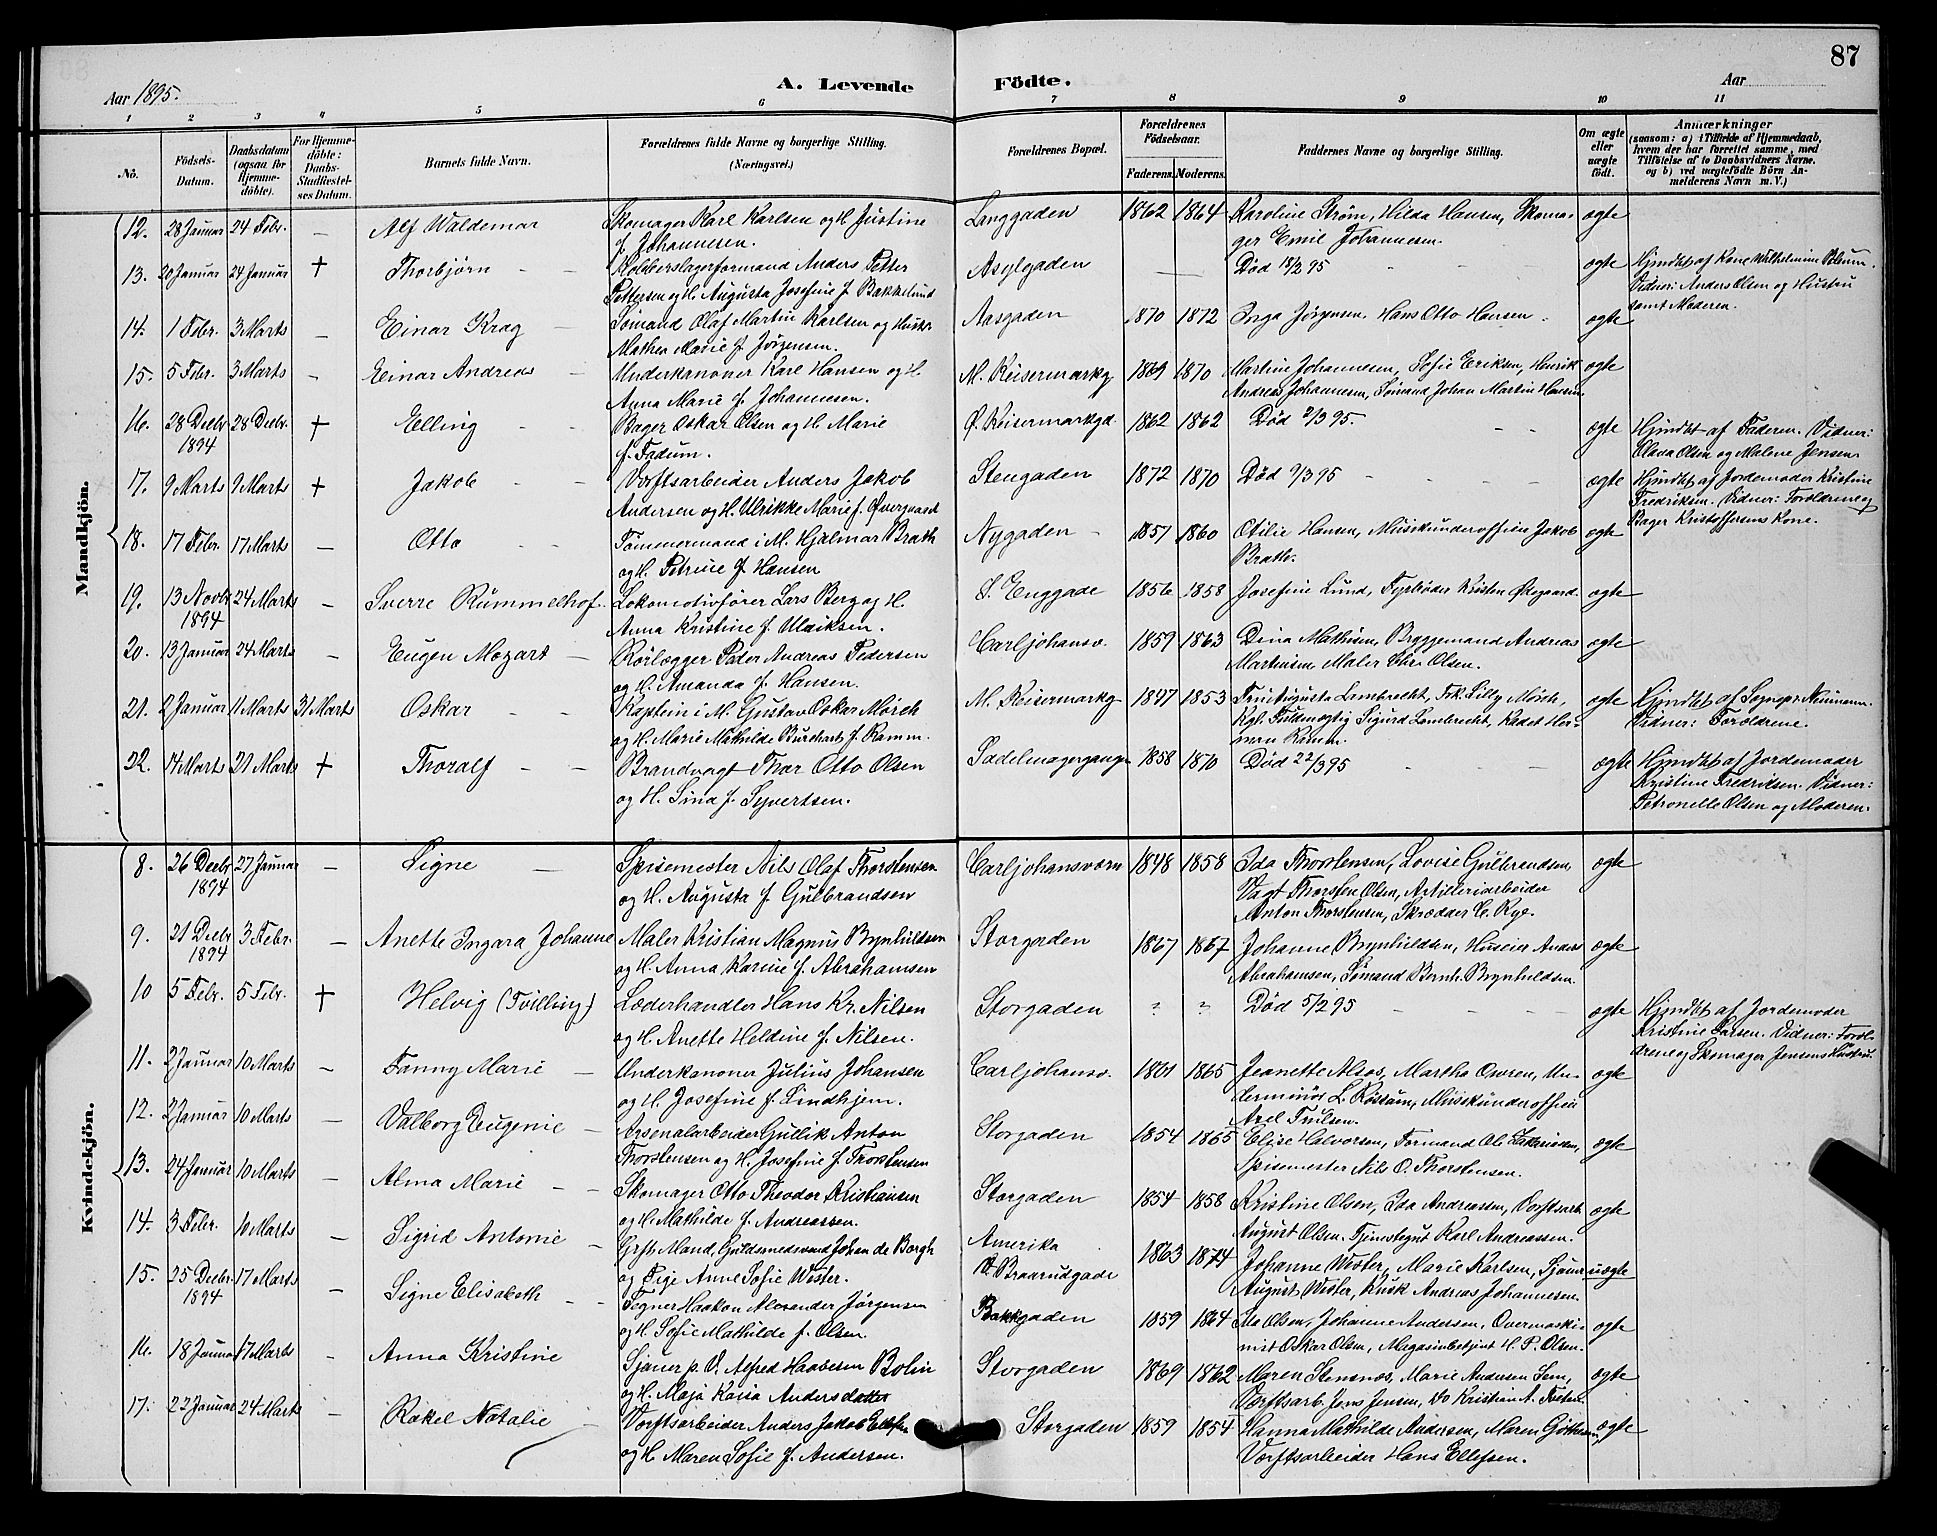 87
Aar 1895.
A. Levende Födte.
Aar
1 2 3 4 5 6 7 8 9 10 11
No.
Födsels-Datum.
Daabsdatum (ogsaa for Hjemme-döbte).
For Hjemme-döbte: Daabs-Stadfæstel-ses Datum.
Barnets fulde Navn.
Forældrenes fulde Navne og borgerlige Stilling. (Næringsvei.)
Forældrenes Bopæl.
Forældrenes Födselsaar.
Faderens. Moderens.
Faddernes Navne og borgerlige Stilling.
Om ægte eller uægte födt.
Anmærkninger
(saasom: a) i Tilfælde af Hjemmedaab,
hvem der har forrettet samme, med
Tilföielse af to Daabsvidners Navne.
og b) ved uægtefödte Börn An-
melderens Navn m. V.)
Mandkjön.
12. 28 Januar 24 Febr. – Alf Waldemar Skomager Karl Karlsen og H. Justine
f. Johannesen.
Langgaden 1862 1864 Karoline Strøm, Hilda Hansen, Skoma-
ger Emil Johannesen. ægte
13. 20 Januar 24 Januar + Thorbjørn – – Kobberslagerformand Anders Petter
Pettersen og H. Augusta Josefine f. Bakkelund
Asylgaden — Død 18/2 95 ægte Hjmdbt af Kone Wilhelmine
Vidner: Anders Olsen og Hustru
samt Moderen.
14. 1 Febr. 3 Marts – Einar Krag – Sømand Olaf Martin Karlsen og Hustr.
Mathea Marie f. Jørgensen.
Aasgaden 1870 1872 Inga Jørgensen. Hans Otto Hansen. ægte
15. 5 Febr. 3 Marts – Einar Andreas – Underkanoner Karl Hansen og H.
Anna Marie f. Johannesen.
M. Keisermarkg 1869 1870 Martine Johannesen, Sofie Eriksen, Henrik
Andreas Johannesen, Sømand Johan Martin Hansen. ægte
16. 28 Decbr 1894 28 Decbr. + Elling – – Bager Oskar Olsen og H. Marie
f. Fadum.
Ø. Keisermarkgd. 1862 1862 Død 2/3 95. – – ægte Hjmdbt af Faderen. Vidner:
Olava Olsen og Malene Jensen
17. 9 Marts 9 Marts + Jakob – – Værftsarbeider Anders Jakob
Andersen og H. Ulrikke Marie f. Øvergaard
Stengaden 1872 1870 Død 9/3 95 ægte Hjmdbt af Jordemoder Kristine
Fredriksen. Vidner: Forældrene og
Bager Kristoffersens Kone.
18. 17 Febr. 17 Marts – Otto – – Tømmermand i M. Hjalmar Brath
og H. Petrine f. Hansen
Nygaden – 1857 1860 Otilie Hansen, Musikunderofficer Jakob
Brath. ægte
19. 13 Novbr 1894 24 Marts – Sverre Rummelhof. Lokomotivfører Lars Berg og H.
Anna Kristine f. Ulriksen.
S. Enggade 1856 1858 Josefine Lund, Fyrbøder Kristen Østgaard. ægte
20. 13 Januar 24 Marts – Eugen Mozart – Rørlægger Peder Andreas Pedersen
og H. Amanda f. Hansen.
Carljohansv. 1859 1863 Dina Mathisen, Bryggemand Andreas
Martinsen Maler Chr. Olsen. ægte
21. 2 Januar 11 Marts 31 Marts Oskar – – Kaptein i M. Gustav Oskar Mørch
og H. Marie Mathilde Burchart f. Ramm.
M. Keisermarkg 1847 1853 Fru Augusta Lambrecht, Frk. Lilly Mörch,
Kgl. Fuldmægtig Sigurd Lambrecht, Kadet Her-
man Ramm. ægte Hjmdbt af Sognepr. Neumann.
Vidner: Forældrene.
22. 14 Marts 21 Marts + Thoralf – – Brandvagt Thor Otto Olsen
og H. Sina f. Syvertsen.
Sadelmagergangen 1858 1870 Død 22/3 95 ægte Hjmdbt af Jordemoder
Kristine Fredriksen. Vidner:
Petronelle Olsen og Moderen.
Kvindekjön.
8. 26 Decbr 1894 27 Januar – Signe – Spisemester Nils Olaf Thorstensen
og H. Augusta f. Gulbrandsen
Carljohansværn 1848 1858 Ida Thorstensen, Lovise Gulbrandsen,
Vagt Thorsten Olsen, Artilleriarbeider
Anton Thorstensen, Skrædder C. Rye. ægte
9. 21 Decbr 1894 3 Febr. – Anette Ingara Johanne Maler Kristian Magnus Brynhildsen
og H. Anna Karine f. Abrahamsen
Storgaden 1867 1867 Johanne Brynhildsen, Huseier Anders
Abrahamsen, Sømand Bernh. Brynhildsen. ægte
10 5 Febr. 5 Febr. + Helvig (Tvilling) Læderhandler Hans Kr. Nilsen
og H. Anette Heldine f. Nilsen.
Storgaden ? ? Død 5/2 95 – – – ægte Hjmdbt af Jordemoder
Kristine Larsen. Vidner: Foræl-
drene og Skomager Jensens Hustru.
11. 2 Januar 10 Marts – Fanny Marie – Underkanoner Julius Johansen
og H. Josefine f. Lindhjem.
Carljohansv. 1861 1865 Jeanette Alsos, Martha Owren, Un-
derminør L. Røskum, Musikunderofficer
Axel Trulsen. ægte
12. 2 Januar 10 Marts – Valborg Eugenie – Arsenalarbeider Gullik Anton
Thorstensen og H. Josefine f. Thorstensen
Storgaden 1854 1865 Elise Halvorsen, Formand Ole Zakrisen,
Spisemester Nils O. Thorstensen. ægte
13. 24 Januar 10 Marts – Alma Marie – – Skomager Otto Theodor Kristiansen
og H. Mathilde f. Andreassen.
Storgaden 1854 1858 Kristine Olsen, Ida Andreassen, Værftsarb.
August Olsen. Tjenestegut Karl Andreassen. ægte
14. 3 Febr. 10 Marts – Sigrid Antonie – Gift Mand, Guldsmedsvend Johan de Borgh
og Pige Anne Sofie Wister.
Amerika
V. Braarudgade 1863 1874 Johanne Wister, Marie Karlsen, Sjauer
August Wister, Kusk Andreas Johannesen. uægte
15. 25 Decbr. 1894 17 Marts – Signe Elisabeth – – Tegner Haakon Alexander Jørgensen
og H. Sofie Mathilde f. Olsen.
Bakkgaden 1859 1864 Olsen, Johanne Andersen, Overmaski-
nist Oskar Olsen, Magasinbetjent H. P. Olsen. ægte
16. 18 Januar 17 Marts – Anna Kristine Sjauer p. V. Alfred Haavesen Bolin
og H. Maja Kaisa Andersdatter
Storgaden 1869 1862 Maren Stensnes, Marie Andersen Sem,
Værftsarb. Jens Jensen, Do Kristian A. ægte
17. 22 Januar 24 Marts – Rakel Natalie – Værftsarbeider Anders Jakob Ellefsen
og H. Maren Sofie f. Andersen.
Storgaden 1859 1854 Hanna Mathilde Andersen, Maren
Værftsarbeider Hans Ellefsen. ægte